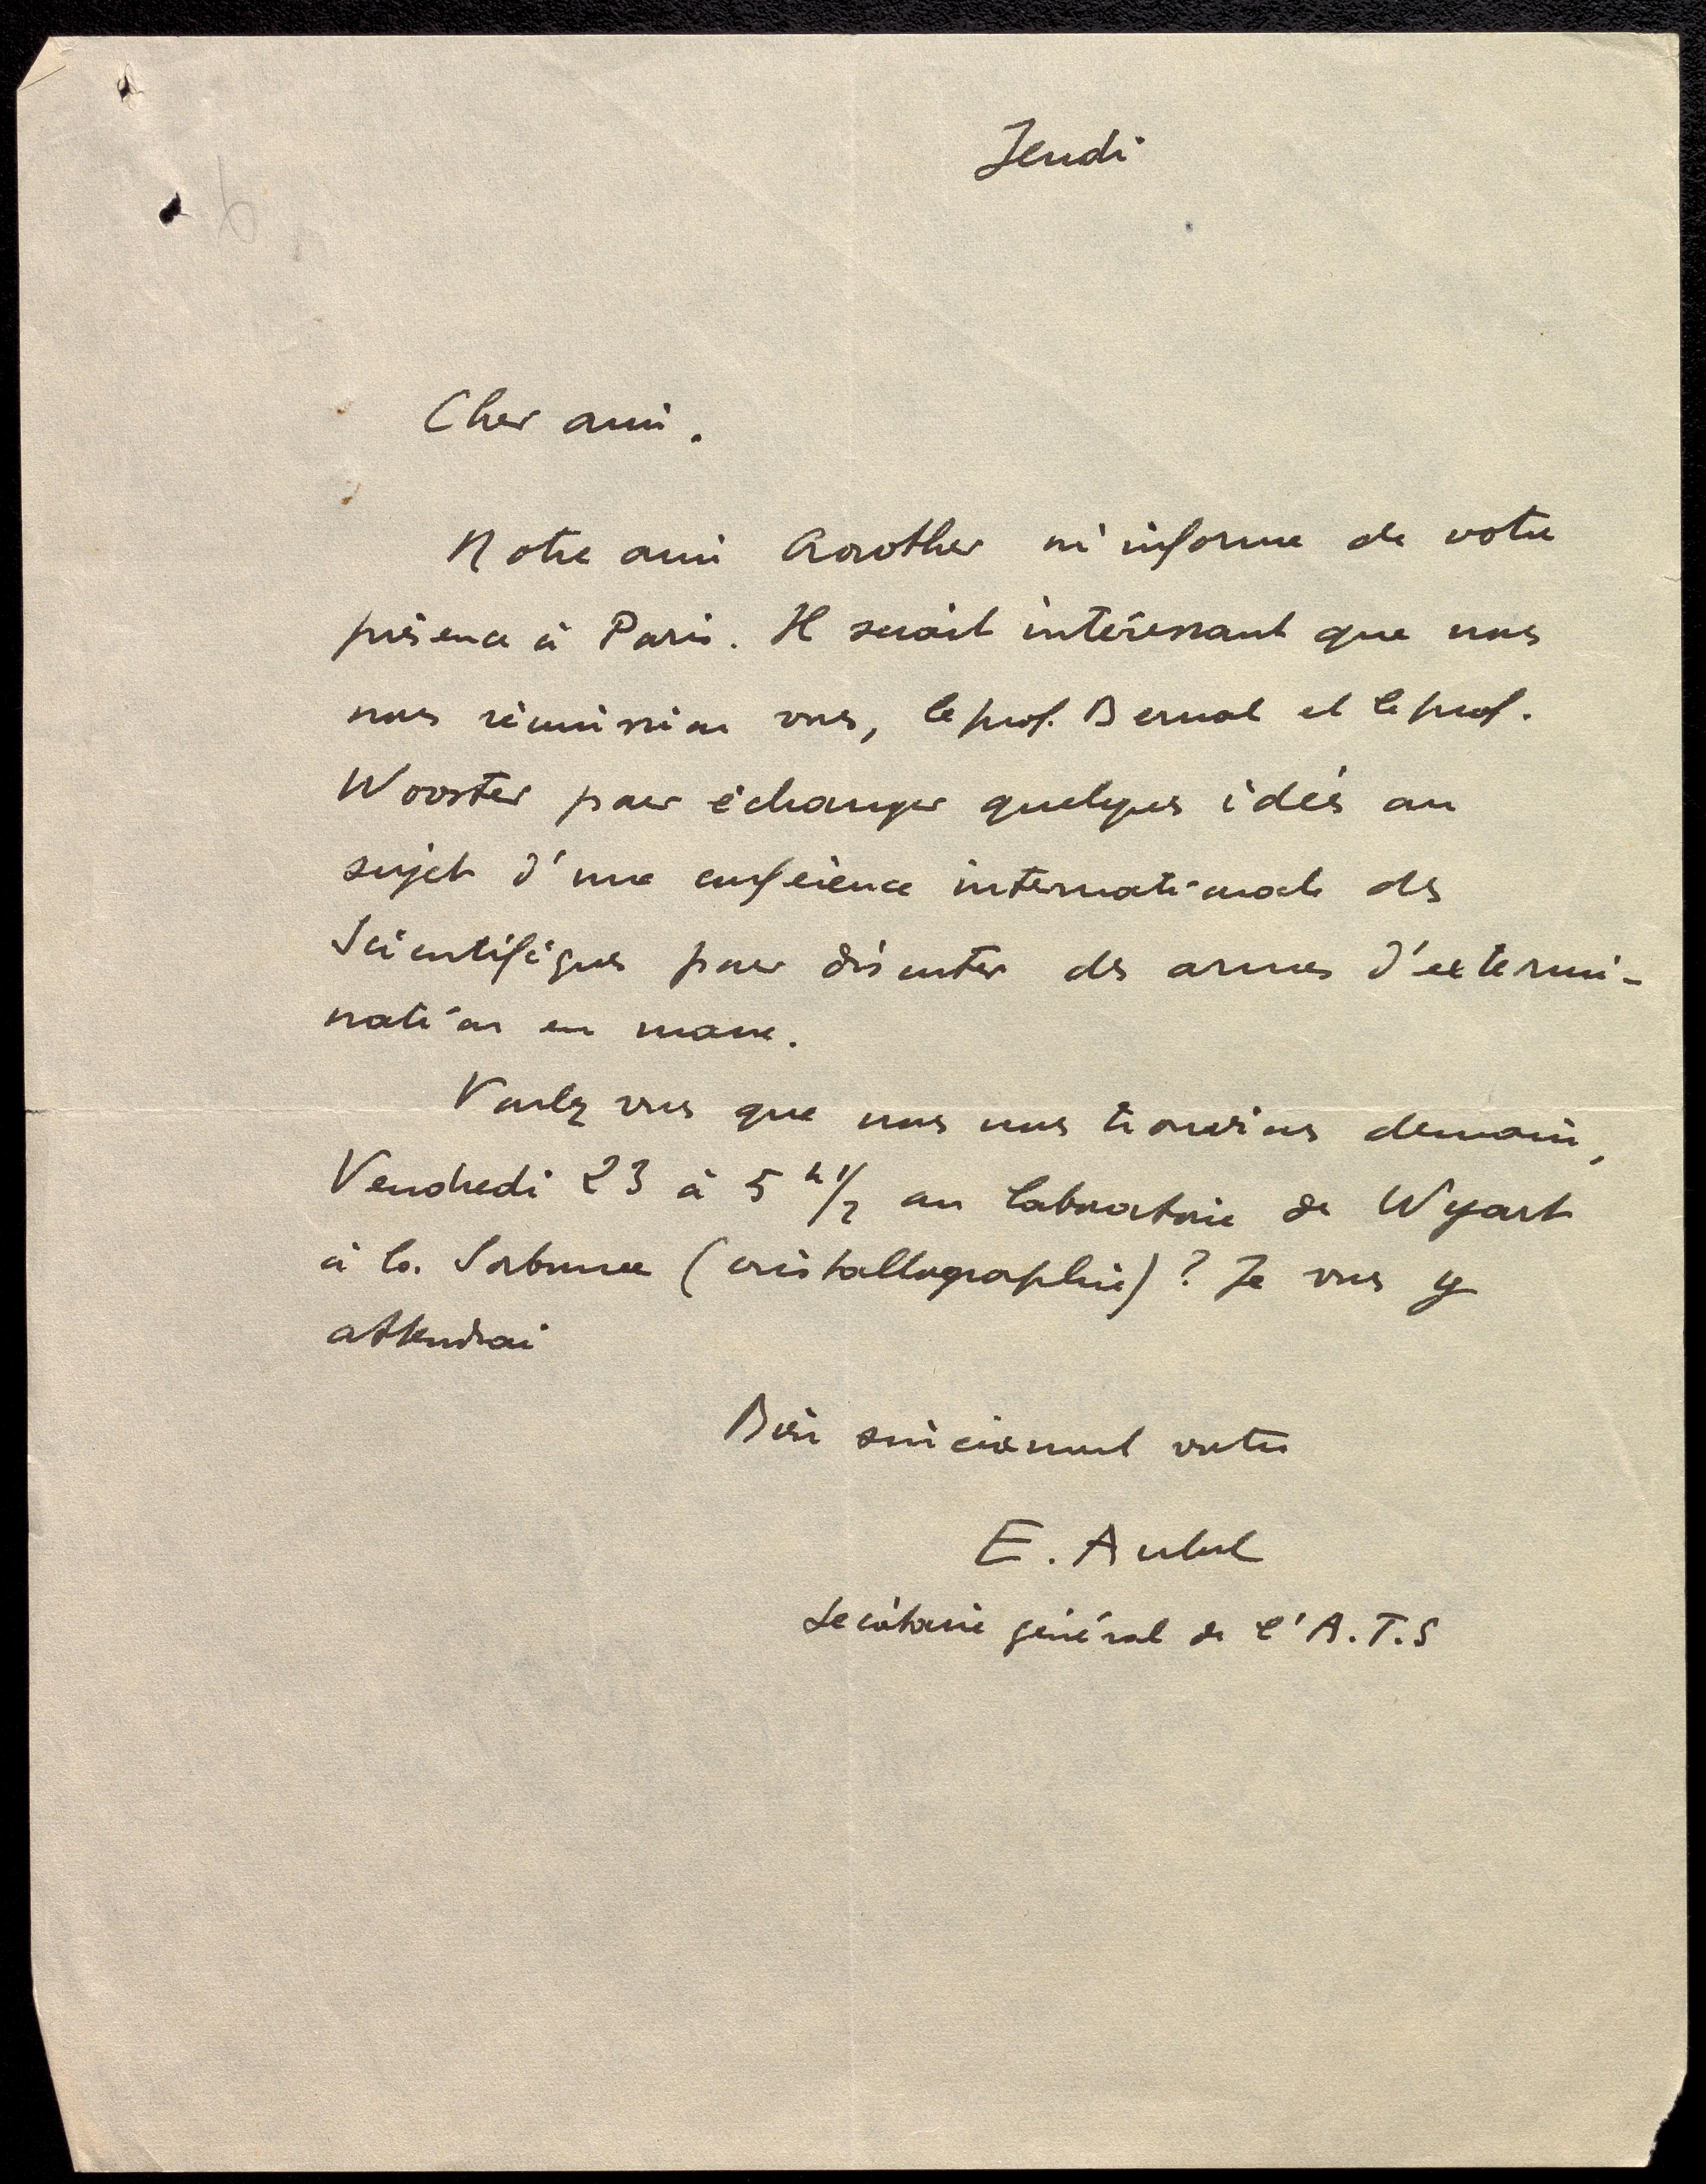 Jeudi
Cher ami.
Notre ami Crowther m'informe de votre
présence à Paris. Il serait intéressant que nous
nous réunissions vous, le prof. Bernal et le prof.
Wooster pour échanger quelques idées au
sujet d'une conférence internationale des
Scientifiques pour discuter des armes d'extermi-
nation en masse.
Voulez vous que nous nous trouvions demain,
Vendredi 23 à 5 h 1/2 au laboratoire de Wyart
à la Sorbonne (cristallographie) ? Je vous y
attendrai
Bien sincèrement votre
E. Aubel
Secrétaire général de l'A.T.S